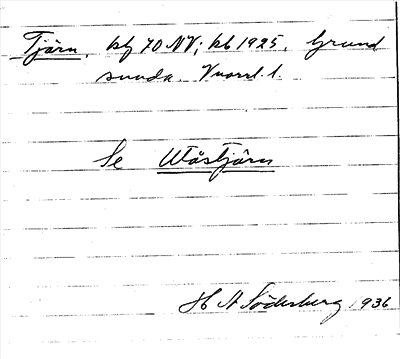 Tjärn, kbf 70 NV; kb 1925. Grund
sunda. Vuorrl. l.
Se Utåstjärn
H A Söderberg 1936